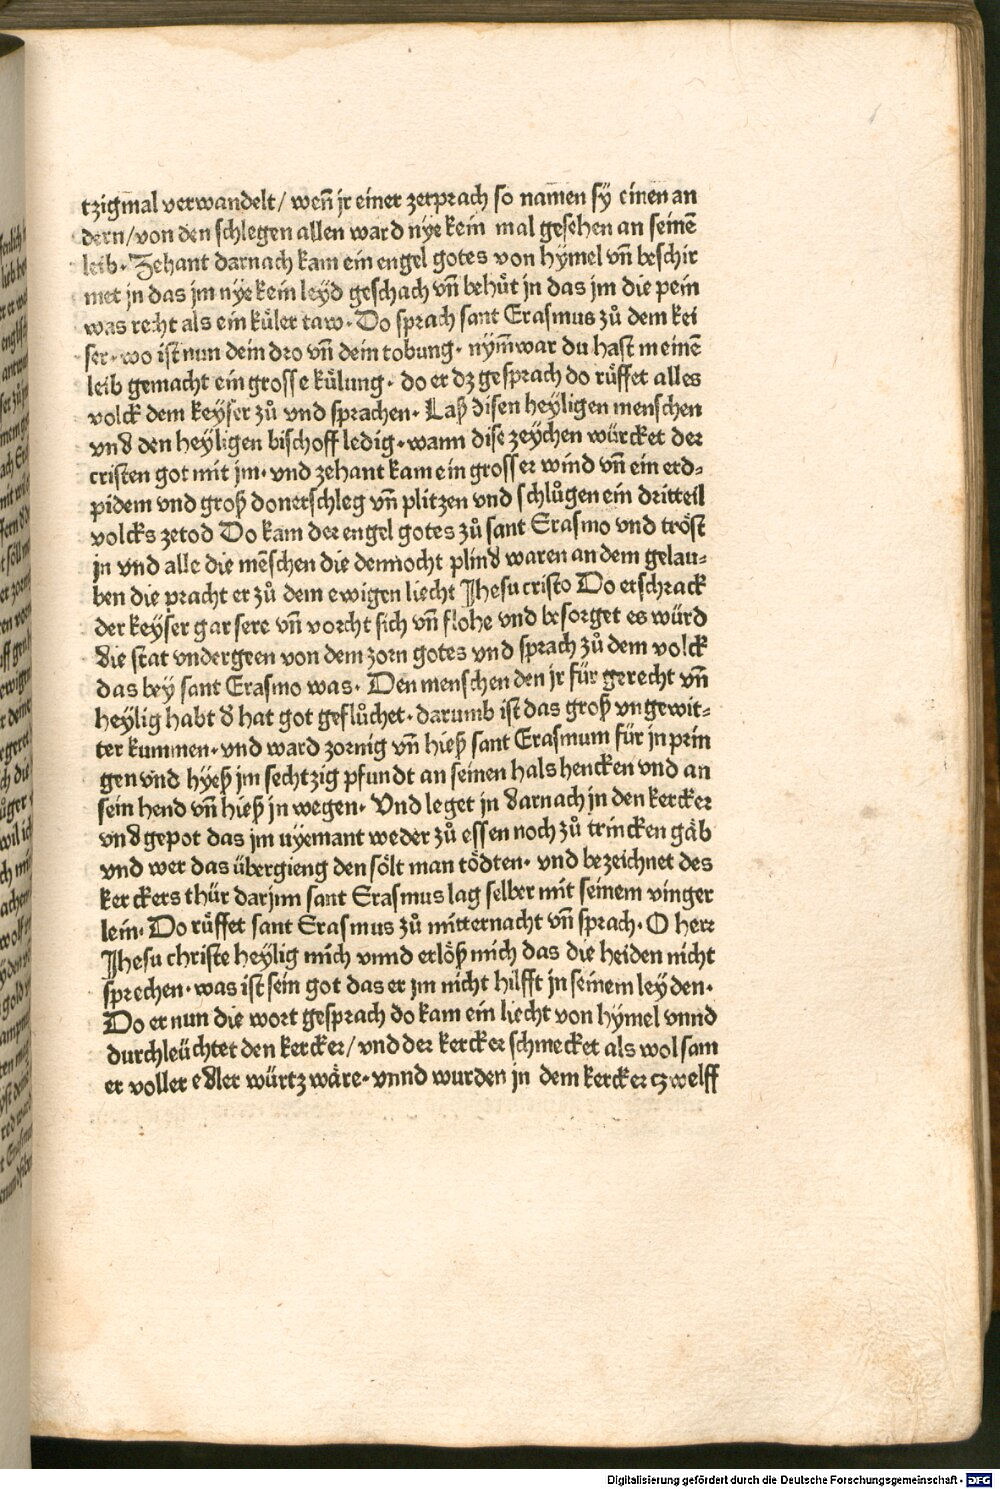 tzigmal verwandelt/ wen̄ jr einer zerprach so namen sy einen an
dern/von den schlegen allen ward nye kein mal gesehen an seinē
leib. Zehant darnach kam ein engel gotes von hymel vn̄ beschir
met jn das jm nye kein leyd geschach vn̄ behuͤt jn das jm die pein
was recht als ein kuͤler taw. Do sprach sant Erasmus zuͦ dem kei
ser. wo ist nun dein dro vn̄ dein tobung. nym̄ war du hast meinē
leib gemacht ein grosse kuͤlung. do er dz gesprach do ruͤffet alles
volck dem keyser zuͦ vnd sprachen. Laß disen heyligen menschen
vnd den heyligen bischoff ledig. wann dise zeychen wuͤrcket der
cristen got mit jm. vnd zehant kam ein grosser wind vn̄ ein erd-
pidem vnd groß donerschleg vn̄ plitzen vnd schluͦgen ein dritteil
volcks zetod Do kam der engel gotes zuͦ sant Erasmo vnd troͤst
jn vnd alle die mēschen die dennocht plind waren an dem gelau-
ben die pracht er zuͦ dem ewigen liecht Jhesu cristo Do erschrack
der keyser gar sere vn̄ vorcht sich vn̄ flohe vnd besorget es wuͤrd
die stat vndergeen von dem zorn gotes vnd sprach zuͦ dem volck
das bey sant Erasmo was. Den menschen den jr fuͤr gerecht vn̄
heylig habt d hat got gefluͦchet. darumb ist das groß vngewit-
ter kummen. vnd ward zornig vn̄ hieß sant Erasmum fuͤr jn prin
gen vnd hyeß jm sechtzig pfundt an seinen hals hencken vnd an
sein hend vn̄ hieß jn wegen. Vnd leget jn darnach in den kercker
vnd gepot das jm nyemant weder zuͦ essen noch zuͦ trincken gaͤb
vnd wer das uͤbergieng den soͤlt man toͤdten. vnd bezeichnet des
kerckers thuͤr darjnn sant Erasmus lag selber mit seinem vinger
lein. Do ruͤffet sant Erasmus zuͦ mitternacht vn̄ sprach. O herr
Jhesu christe heylig mich vnnd erloͤß mich das die heiden nicht
sprechen. was ist sein got das er jm nicht hilfft jn seinem leyden.
Do er nun die wort gesprach do kam ein liecht von hymel vnnd
durchleuͤchtet den kercker/ vnd der kercker schmecket als wol sam
er voller edler wuͤrtz waͤre. vnnd wurden jn dem kercker czwelff
Digitalisierung gefördert durch die Deutsche Forschungsgemeinschaft - DFG